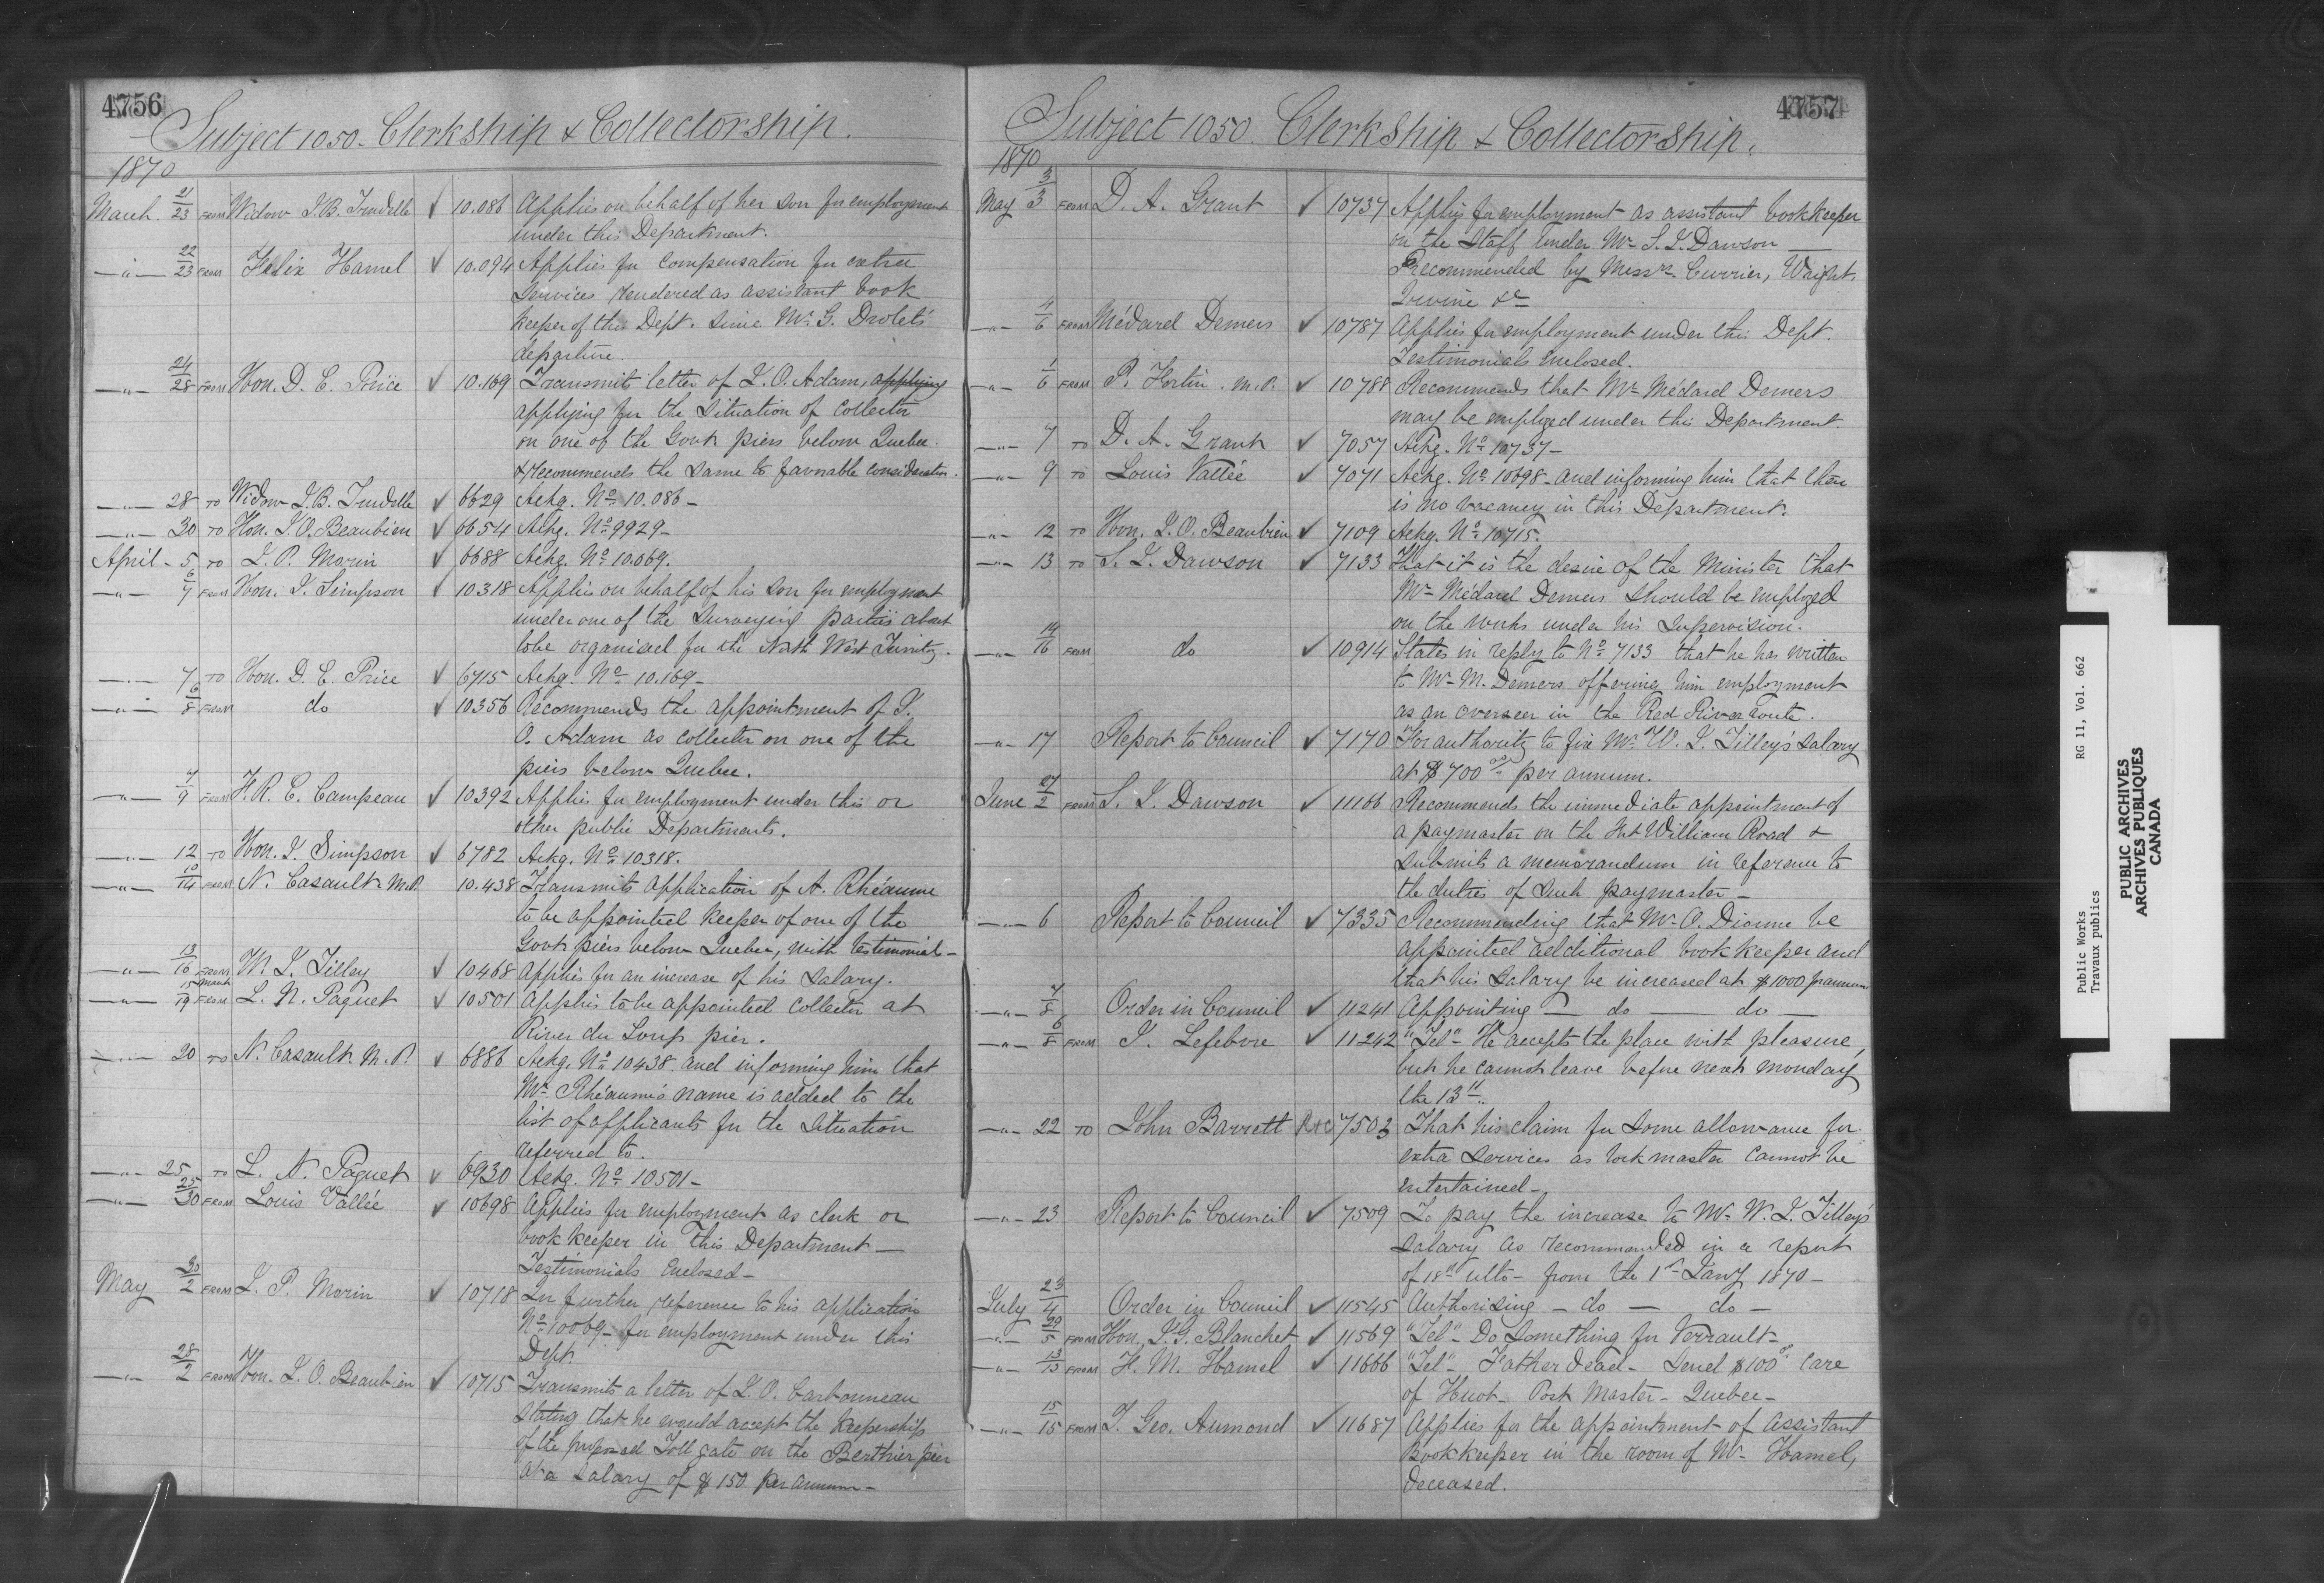 4756
Subject 1050. Clerkship & Collectorship.
1870
March 21/23 FROM Widow J. B. Trudelle ✓ 10.086 Applies on behalf of her son for employment
under this Department.
—"— 22/23 FROM Felix Hamel ✓ 10.094 Applies for compensation for extra
services rendered as assistant book
keeper of this Dept. since Mr. G. Drolet's
departure.
—"— 24/28 FROM Hon. D. E. Price ✓ 10.169 Transmits letter of J. O. Adam, applying
applying for the situation of collector
on one of the Govt. piers below Quebec
& recommends the same to favorable consideration.
—"— 28 TO Widow J. B. Trudelle ✓ 6629 Ackg. No. 10.086—
—"— 30 TO Hon. J. O. Beaubien ✓ 6654 Ackg. No. 9929—
April - 5 TO J. P. Morin ✓ 6688 Ackg. No. 10.069.
—"— 6/7 FROM Hon. J. Simpson ✓ 10318 Applies on behalf of his son for employment
under one of the surveying parties about
to be organised for the North West Territory.
—"— 7 TO Hon. D. E. Price ✓ 6715 Ackg. No. 10.169—
—"— 6/8 FROM do ✓ 10356 Recommends the appointment of J.
O. Adam as collector on one of the
piers below Quebec.
—"— 7/9 FROM F. R. E. Campeau ✓ 10392 Applies for employment under this or
other public Departments.
—"— 12 TO Hon. J. Simpson ✓ 6782 Ackg. No. 10318.
—"— 10/14 FROM N. Casault M.P. 10.438 Transmits application of A. Rhéaume
to be appointed keeper of one of the
Govt. piers below Quebec, with testimonial—
—"— 13/16 FROM W. L. Tilley ✓ 10468 Applies for an increase of his salary.
—"— 15 March/19 FROM L. N. Paquet ✓ 10501 Applies to be appointed collector at
River du Loup pier.
—"— 20 TO N. Casault M.P. ✓ 6886 Ackg. No. 10438 and informing him that
Mr. Rhéaume's name is added to the
list of applicants for the situation
referred to.
—"— 25 TO L. N. Paquet ✓ 6930 Ackg. No. 10501—
—"— 25/30 FROM Louis Vallée ✓ 10698 Applies for employment as clerk or
book keeper in this Department—
Testimonials Enclosed—
May 30/2 FROM J. P. Morin ✓ 10718 In further reference to his application
No. 10069— for employment under this
Dept.
—"— 28/2 FROM Hon. J. O. Beaubien ✓ 10715 Transmits a letter of J. O. Carbonneau
stating that he would accept the keepership
of the proposed Toll gate on the Berthier pier
at a salary of $150 per annum—
4757
Subject 1050. Clerkship & Collectorship.
1870
May 3/3 FROM D. A. Grant ✓ 10737 Applies for employment as assistant bookkeeper
on the Staff under Mr. S. J. Dawson —
Recommended by Messrs. Currier, Wright,
Irvine &c
—"— 4/6 FROM Médard Demers ✓ 10787 Applies for employment under this Dept.
Testimonials enclosed.
—"— 1/6 FROM P. Fortin M.P. ✓ 10788 Recommends that Mr. Médard Demers
may be employed under this Department.
—"— 7 TO D. A. Grant ✓ 7057 Ackg. No. 10737—
—"— 9 TO Louis Vallée ✓ 7071 Ackg. No. 10698— and informing him that there
is no vacancy in this Department.
—"— 12 TO Hon. J. O. Beaubien ✓ 7109 Ackg. No. 10715.
—"— 13 TO S. J. Dawson ✓ 7133 That it is the desire of the Minister that
Mr. Médard Demers should be employed
on the works under his supervision.
—"— 14/16 FROM do ✓ 10914 States in reply to No. 7133 that he has written
to Mr. M. Demers offering him employment
as an overseer in the Red River route.
—"— 17 Report to Council ✓ 7170 For authority to fix Mr. W. L. Tilley's salary
at $700 00 per annum.
June 27/2 FROM S. J. Dawson ✓ 11166 Recommends the immediate appointment of
a paymaster on the Fort William Road &
submits a memorandum in reference to
the duties of such paymaster—
—"— 6 Report to Council ✓ 7335 Recommending that Mr. O. Dionne be
appointed additional book keeper and
that his salary be increased at $1000 pr annum
—"— 7/8 Order in Council ✓ 11241 Appointing — do — do —
—"— 6/8 FROM J. Lefebvre ✓ 11242 "Tel"— He accepts the place with pleasure,
but he cannot leave before next monday
the 13th.
—"— 22 TO John Barrett R&C 7503 That his claim for some allowance for
extra services as lockmaster cannot be
entertained—
—"— 23 Report to Council ✓ 7509 To pay the increase to Mr. W. L. Tilley's
salary as recommended in a report
of 18th ulto— from the 1st Jany 1870—
July 23/4 Order in Council ✓ 11545 Authorising — do — do —
—"— 29/5 FROM Hon. J. G. Blanchet ✓ 11569 "Tel"— Do something for Verrault—
—"— 13/13 FROM F. M. Hamel ✓ 11666 "Tel"— Father dead— Send $100 00 care
of Huot— Post Master— Quebec—
—"— 15/15 FROM J. Geo. Aumond ✓ 11687 Applies for the appointment of Assistant
Bookkeeper in the room of Mr. Hamel,
deceased.
Public Works RG 11, Vol. 662
Travaux publics
PUBLIC ARCHIVES
ARCHIVES PUBLIQUES
CANADA